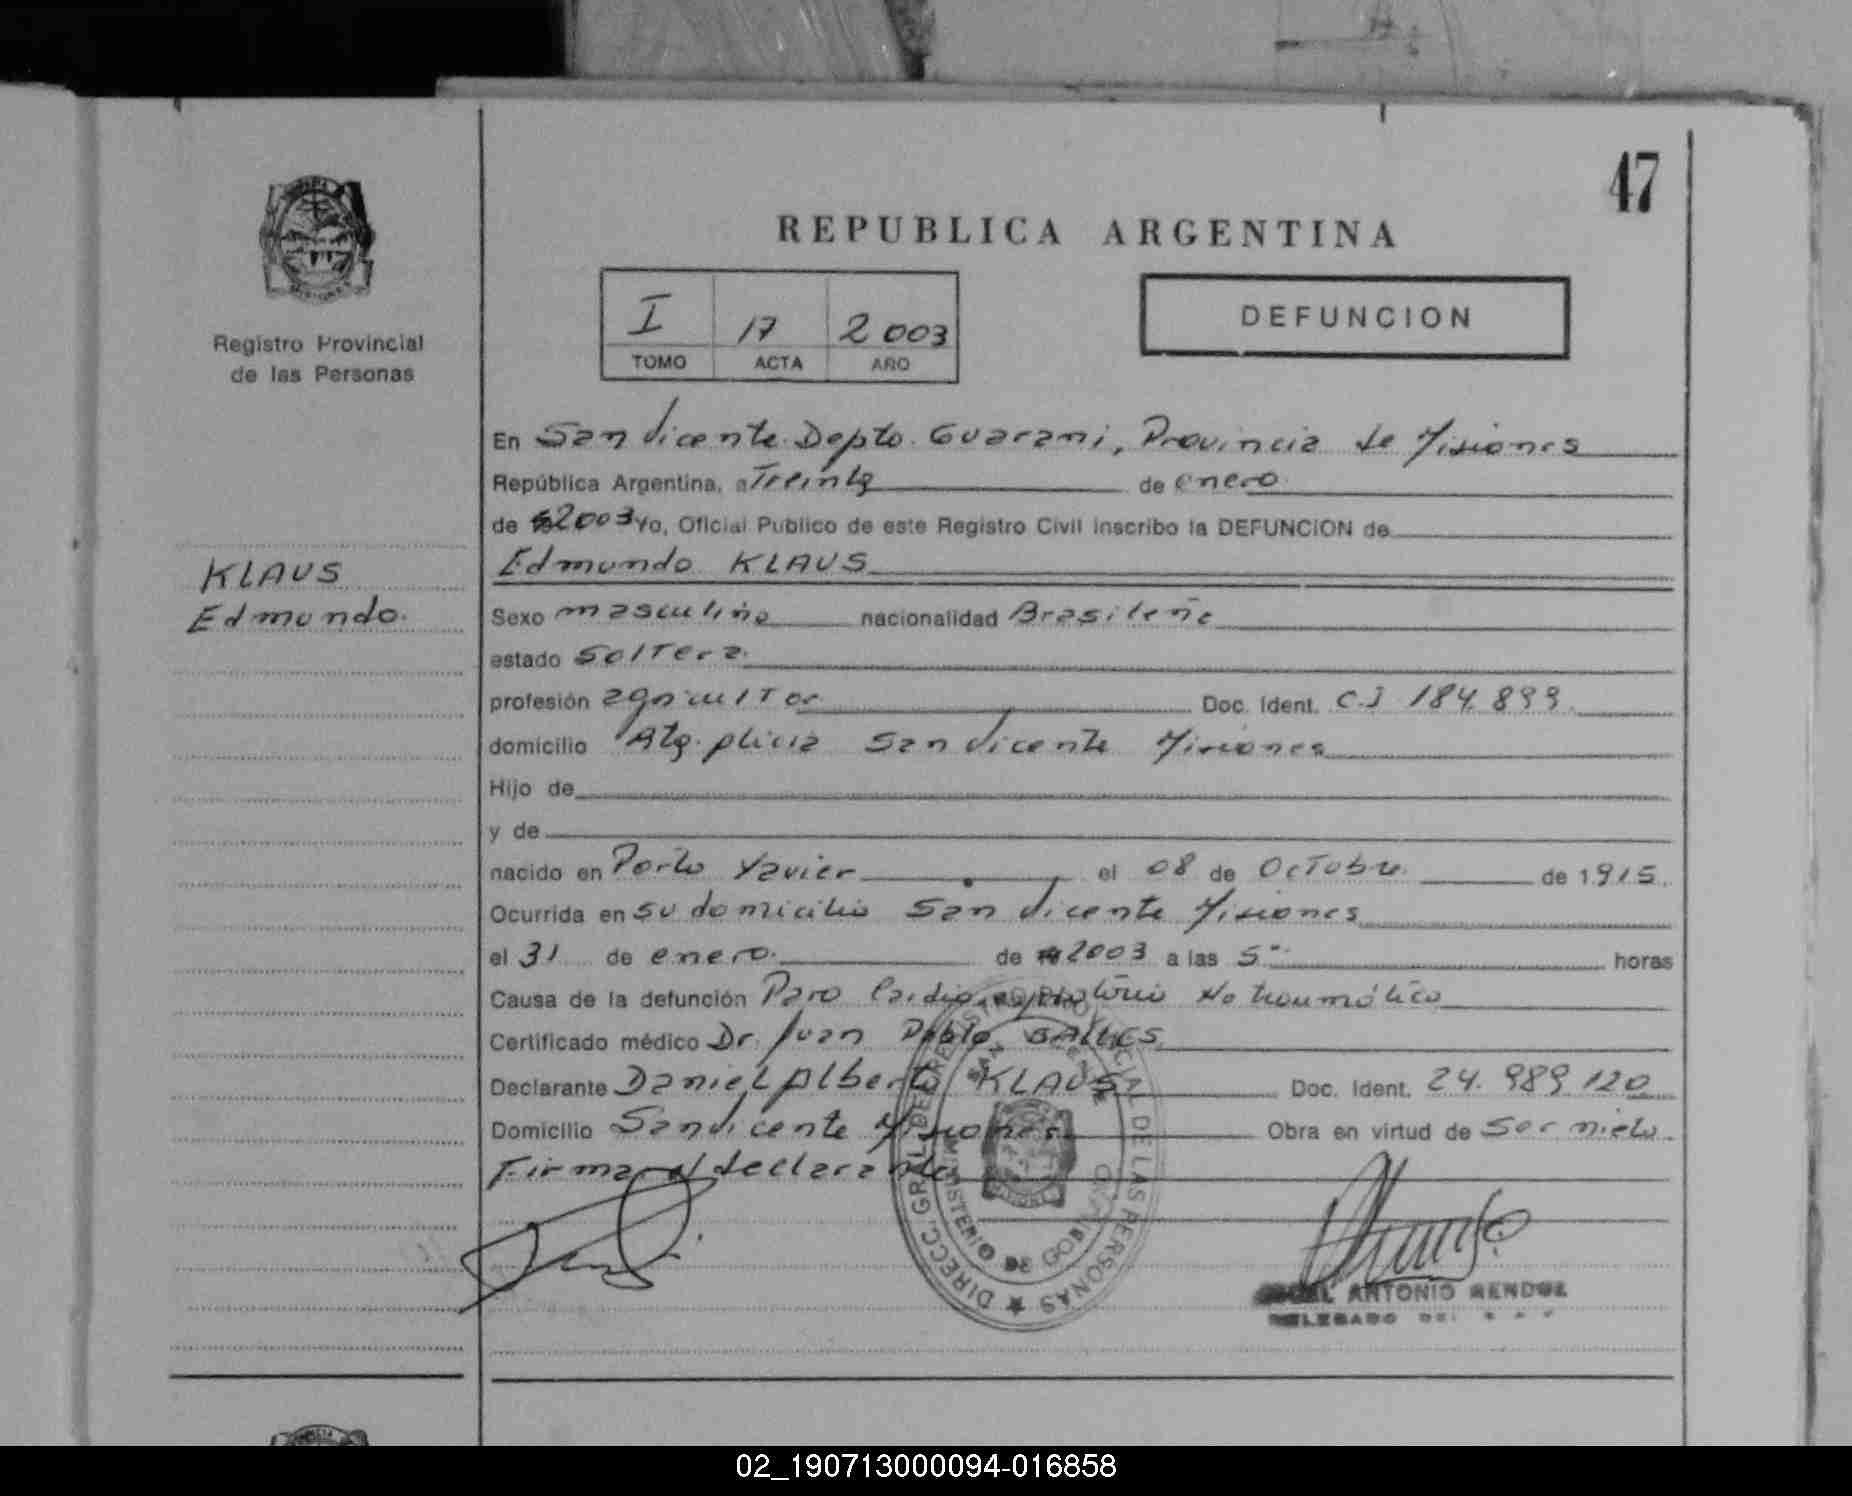 47
REPUBLICA ARGENTINA
Registro Provincial
de las Personas
I 17 2003
TOMO ACTA AÑO
DEFUNCION
En San Vicente Depto. Guarani, Provincia de Misiones
República Argentina, a Treinta de enero
de 2003 Yo, Oficial Publico de este Registro Civil inscribo la DEFUNCION de
KLAUS
Edmundo.
Edmundo KLAUS
Sexo masculino nacionalidad Brasileña
estado Soltera
profesión agricultor Doc. Ident. C.I 184.899
domicilio Picada San Vicente Misiones
Hijo de
y de
nacido en Porto Xavier el 08 de Octubre de 1915.
Ocurrida en su domicilio San Vicente Misiones
el 31 de enero de 2003 a las 5 horas
Causa de la defunción Paro Cardiorespiratorio No traumático
Certificado médico Dr. Juan Pablo
Declarante Daniel Alberto KLAUS Doc. Ident. 24.989.120
Domicilio San Vicente Misiones Obra en virtud de Ser nieto.
Firma el declarante
DIRECC. GRAL. DEL REGISTRO PROVINCIAL DE LAS PERSONAS
SAN VICENTE
MINISTERIO DE GOBIERNO
ANTONIO
DELEGADO
02_190713000094-016858